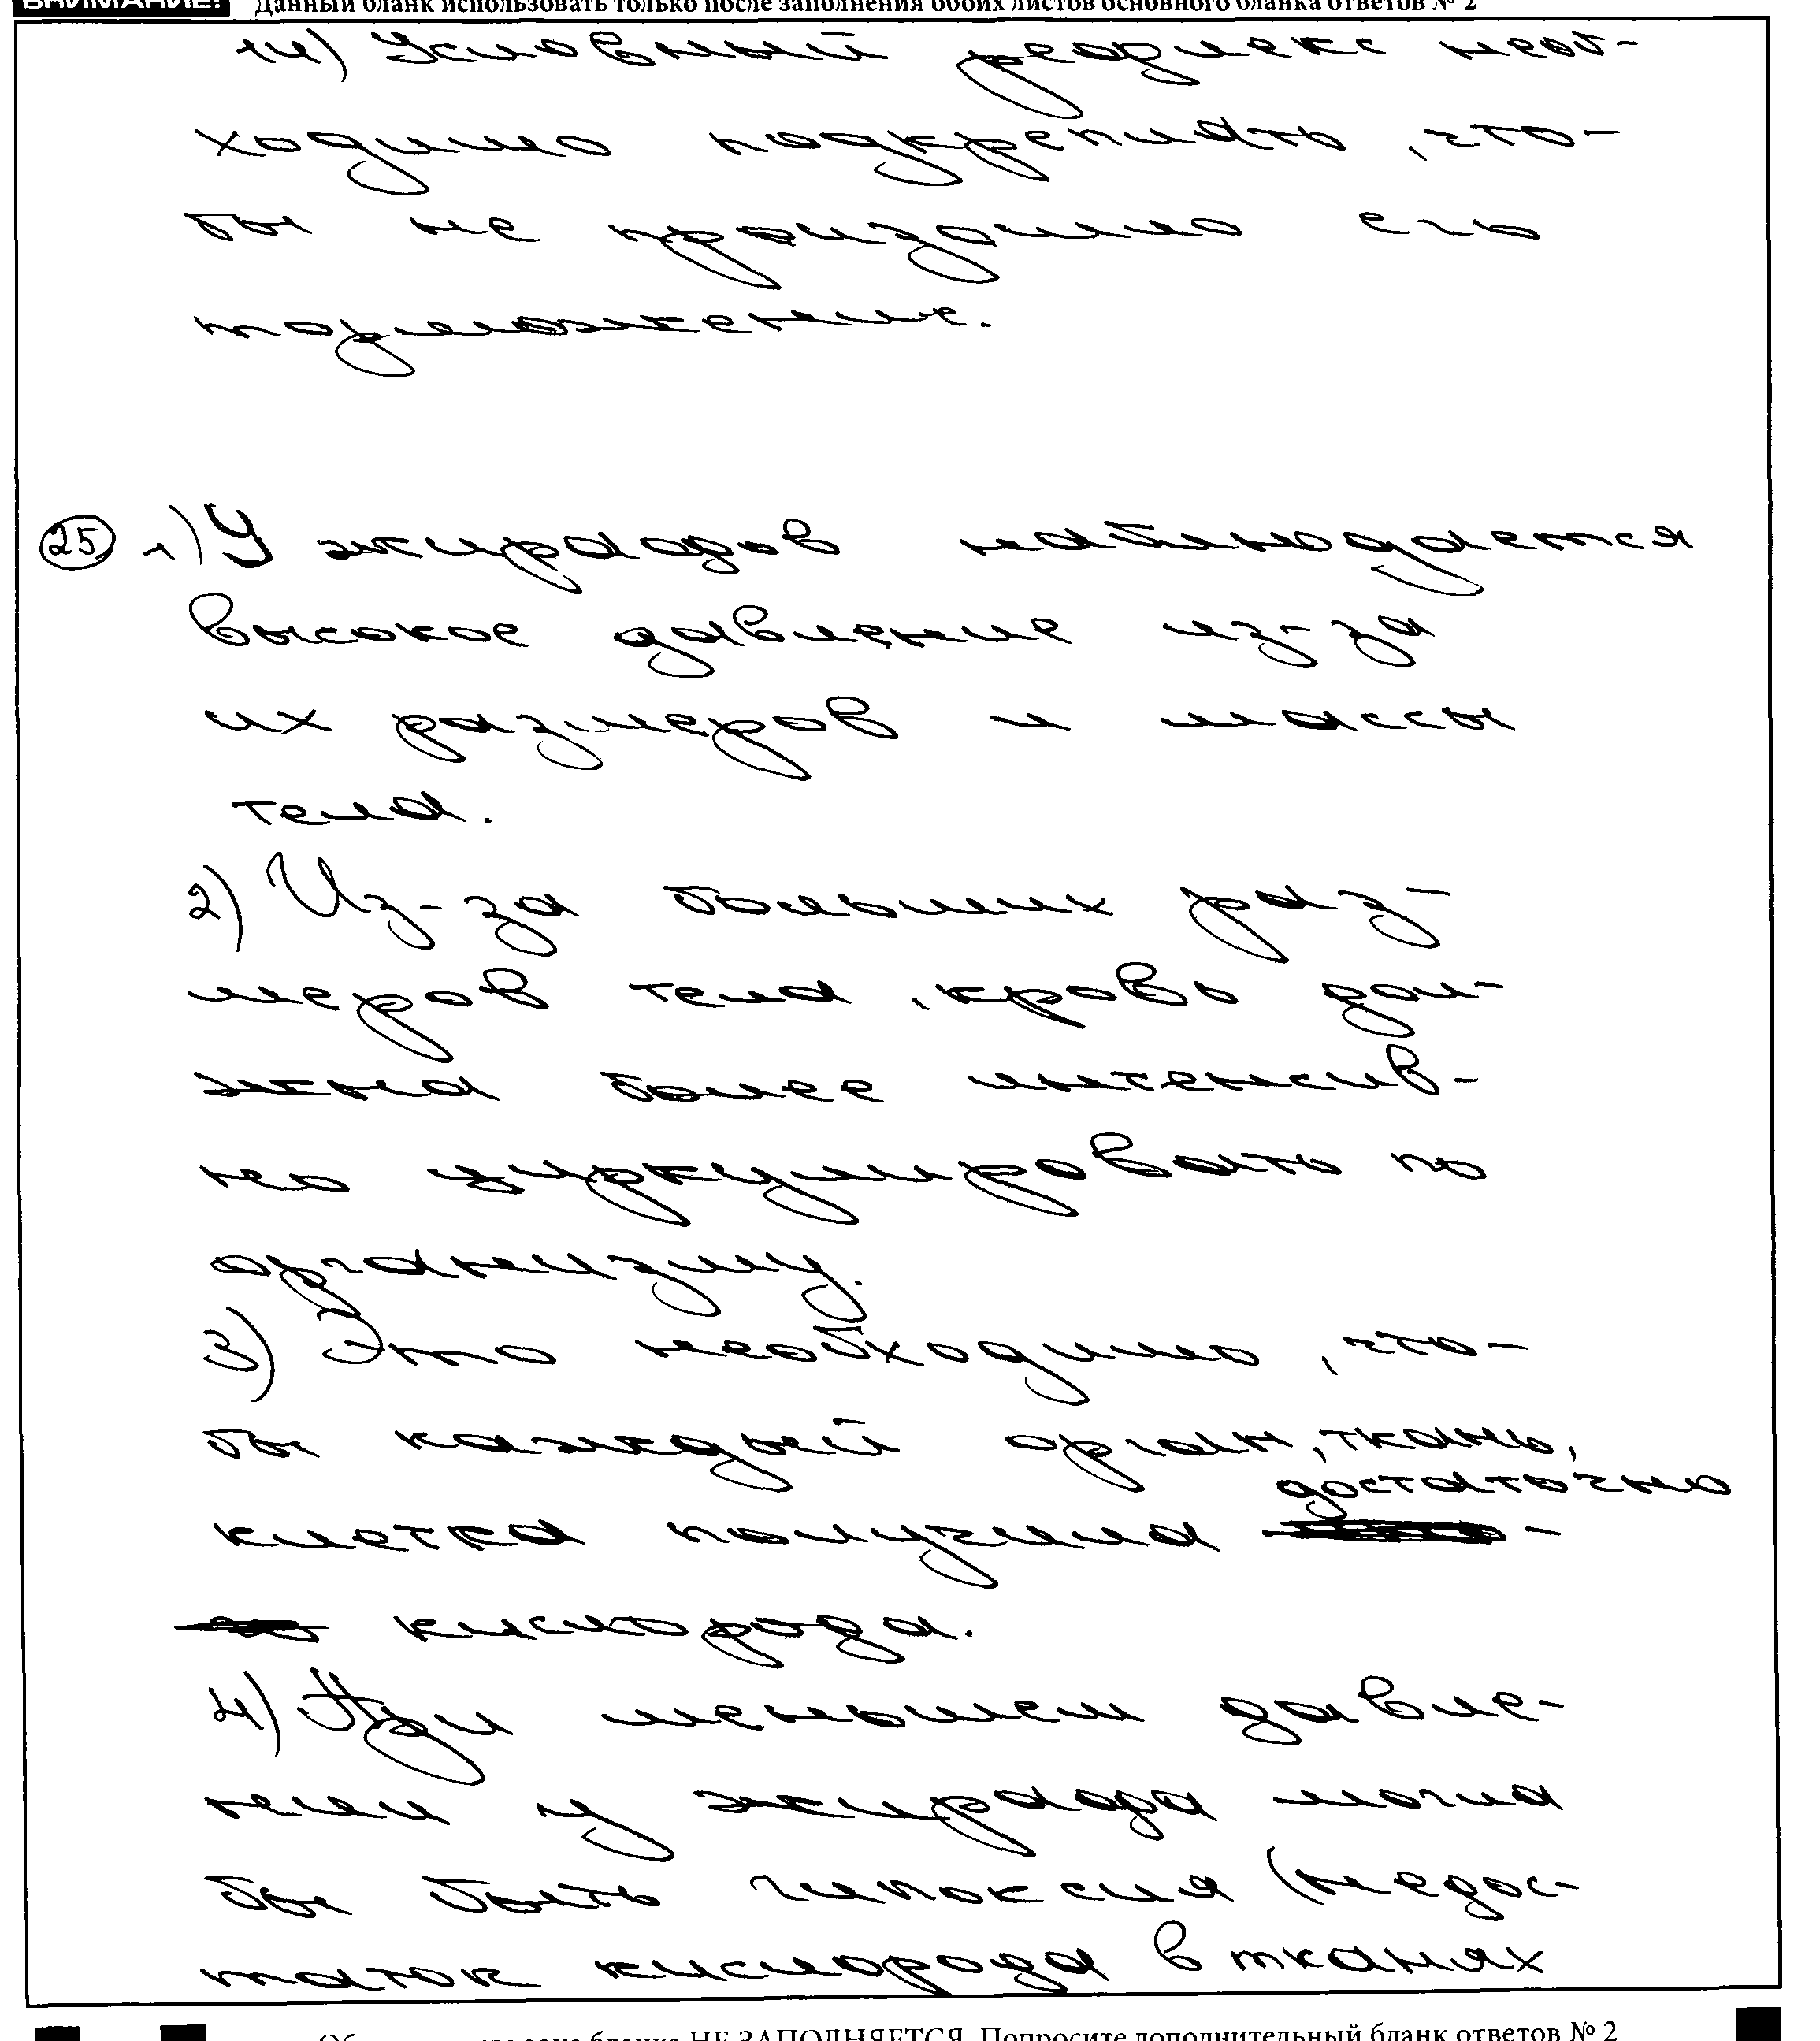 ВНИМАНИЕ! Данный бланк использовать только после заполнения обоих листов основного бланка ответов № 2
14) Условный рефлекс необ-
ходимо подкреплять, что-
бы не произошло его
торможение.
25 1) У жирафов наблюдается
высокое давление из-за
их размеров и массы
тела.
2) Из-за больших раз-
меров тела, кровь дол-
жна более интенсив-
но циркулировать по
организму.
3) Это необходимо, что-
бы каждый орган, ткань,
достаточно
клетка получила -
кислорода.
4) При меньшем давле-
нии у жирафа могла
бы быть гипоксия (недос-
таток кислорода в тканях
зона бланка НЕ ЗАПОЛНЯЕТСЯ. Попросите дополнительный бланк ответов № 2